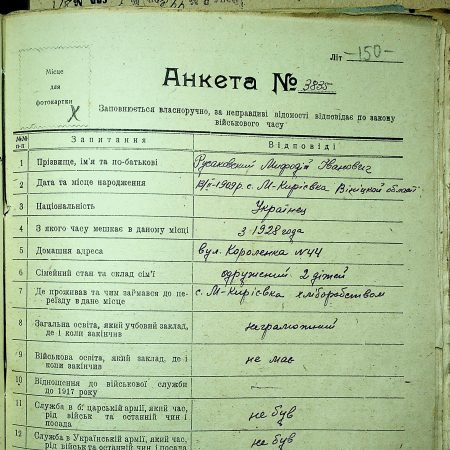 Літ -150-
Місце
для
фотокартки
Анкета № 3835
Заповнюється власноручно, за неправдиві відомості відповідає по закону
військового часу
№№
п-п
Запитання
Відповіді
1 Прізвище, ім'я та по-батькові Русаковский Мифодій Іванович
2 Дата та місце народження 1909 р. с. М-Кирієвка Вініцкой області
3 Національність Українец
4 З якого часу мешкає в даному місці з 1928 года
5 Домашня адреса вул. Короленка №44
6 Сімейний стан та склад сім'ї одружений 2 дітей
7 Де проживав та чим займався до пе-
реїзду в дане місце с. М-Кирієвка хліборобством
8 Загальна освіта, який учбовий заклад,
де і коли закінчив неграмотний
9 Військова освіта, який заклад, де і
коли закінчив не має
10 Відношення до військової служби
до 1917 року —
11 Служба в б. царській армії, який час,
рід військ та останній чин і
посада не був
12 Служба в Українській армії, який час,
рід військ та останній чин і посада не був